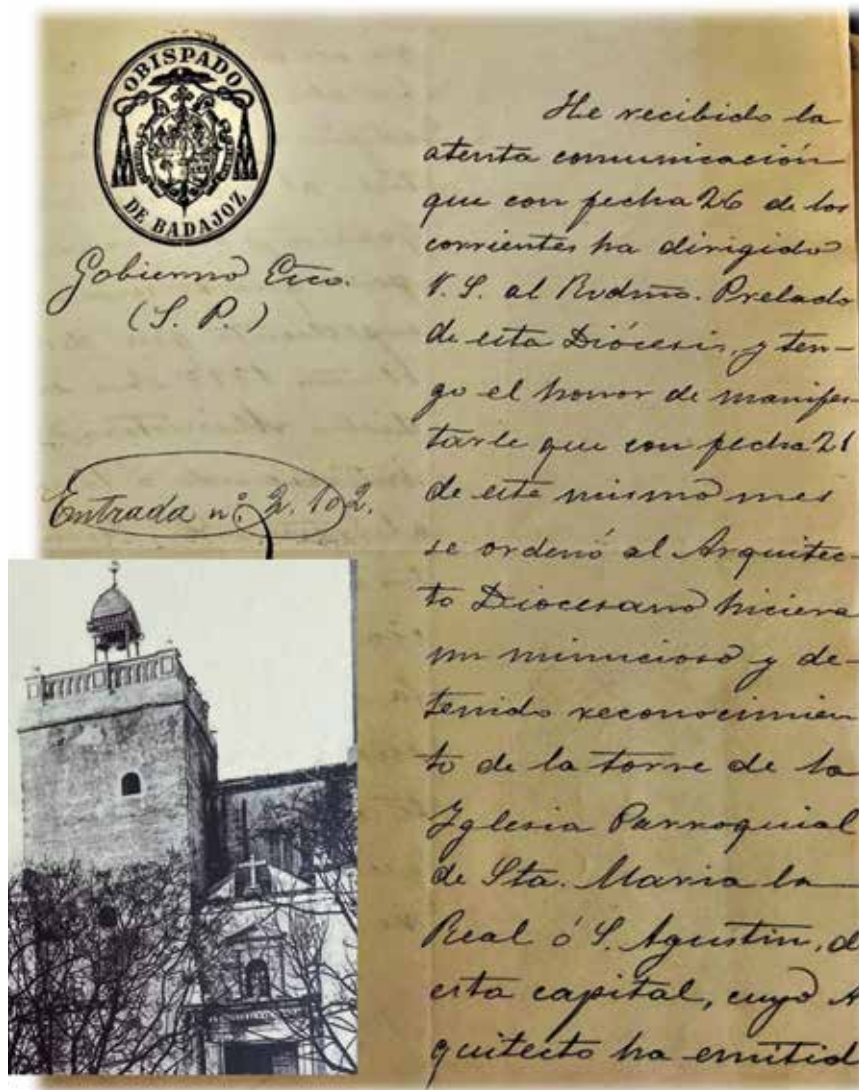 OBISPADO
DE BADAJOZ
Gobierno Ecco.
(S. P.)
Entrada nº. 2.102.
He recibido la
atenta comunicación
que con fecha 26 de los
corrientes ha dirigido
V. S. al Rvdmo. Prelado
de esta Diócesis, y ten-
go el honor de manifes-
tarle que con fecha 21
de este mismo mes
se ordenó al Arquitec-
to Diocesano hiciera
un minucioso y de-
tenido reconocimien
to de la torre de la
Iglesia Parroquial
de Sta. Maria la
Real ó S. Agustin, d
esta capital, cuyo A
quitecto ha emitid